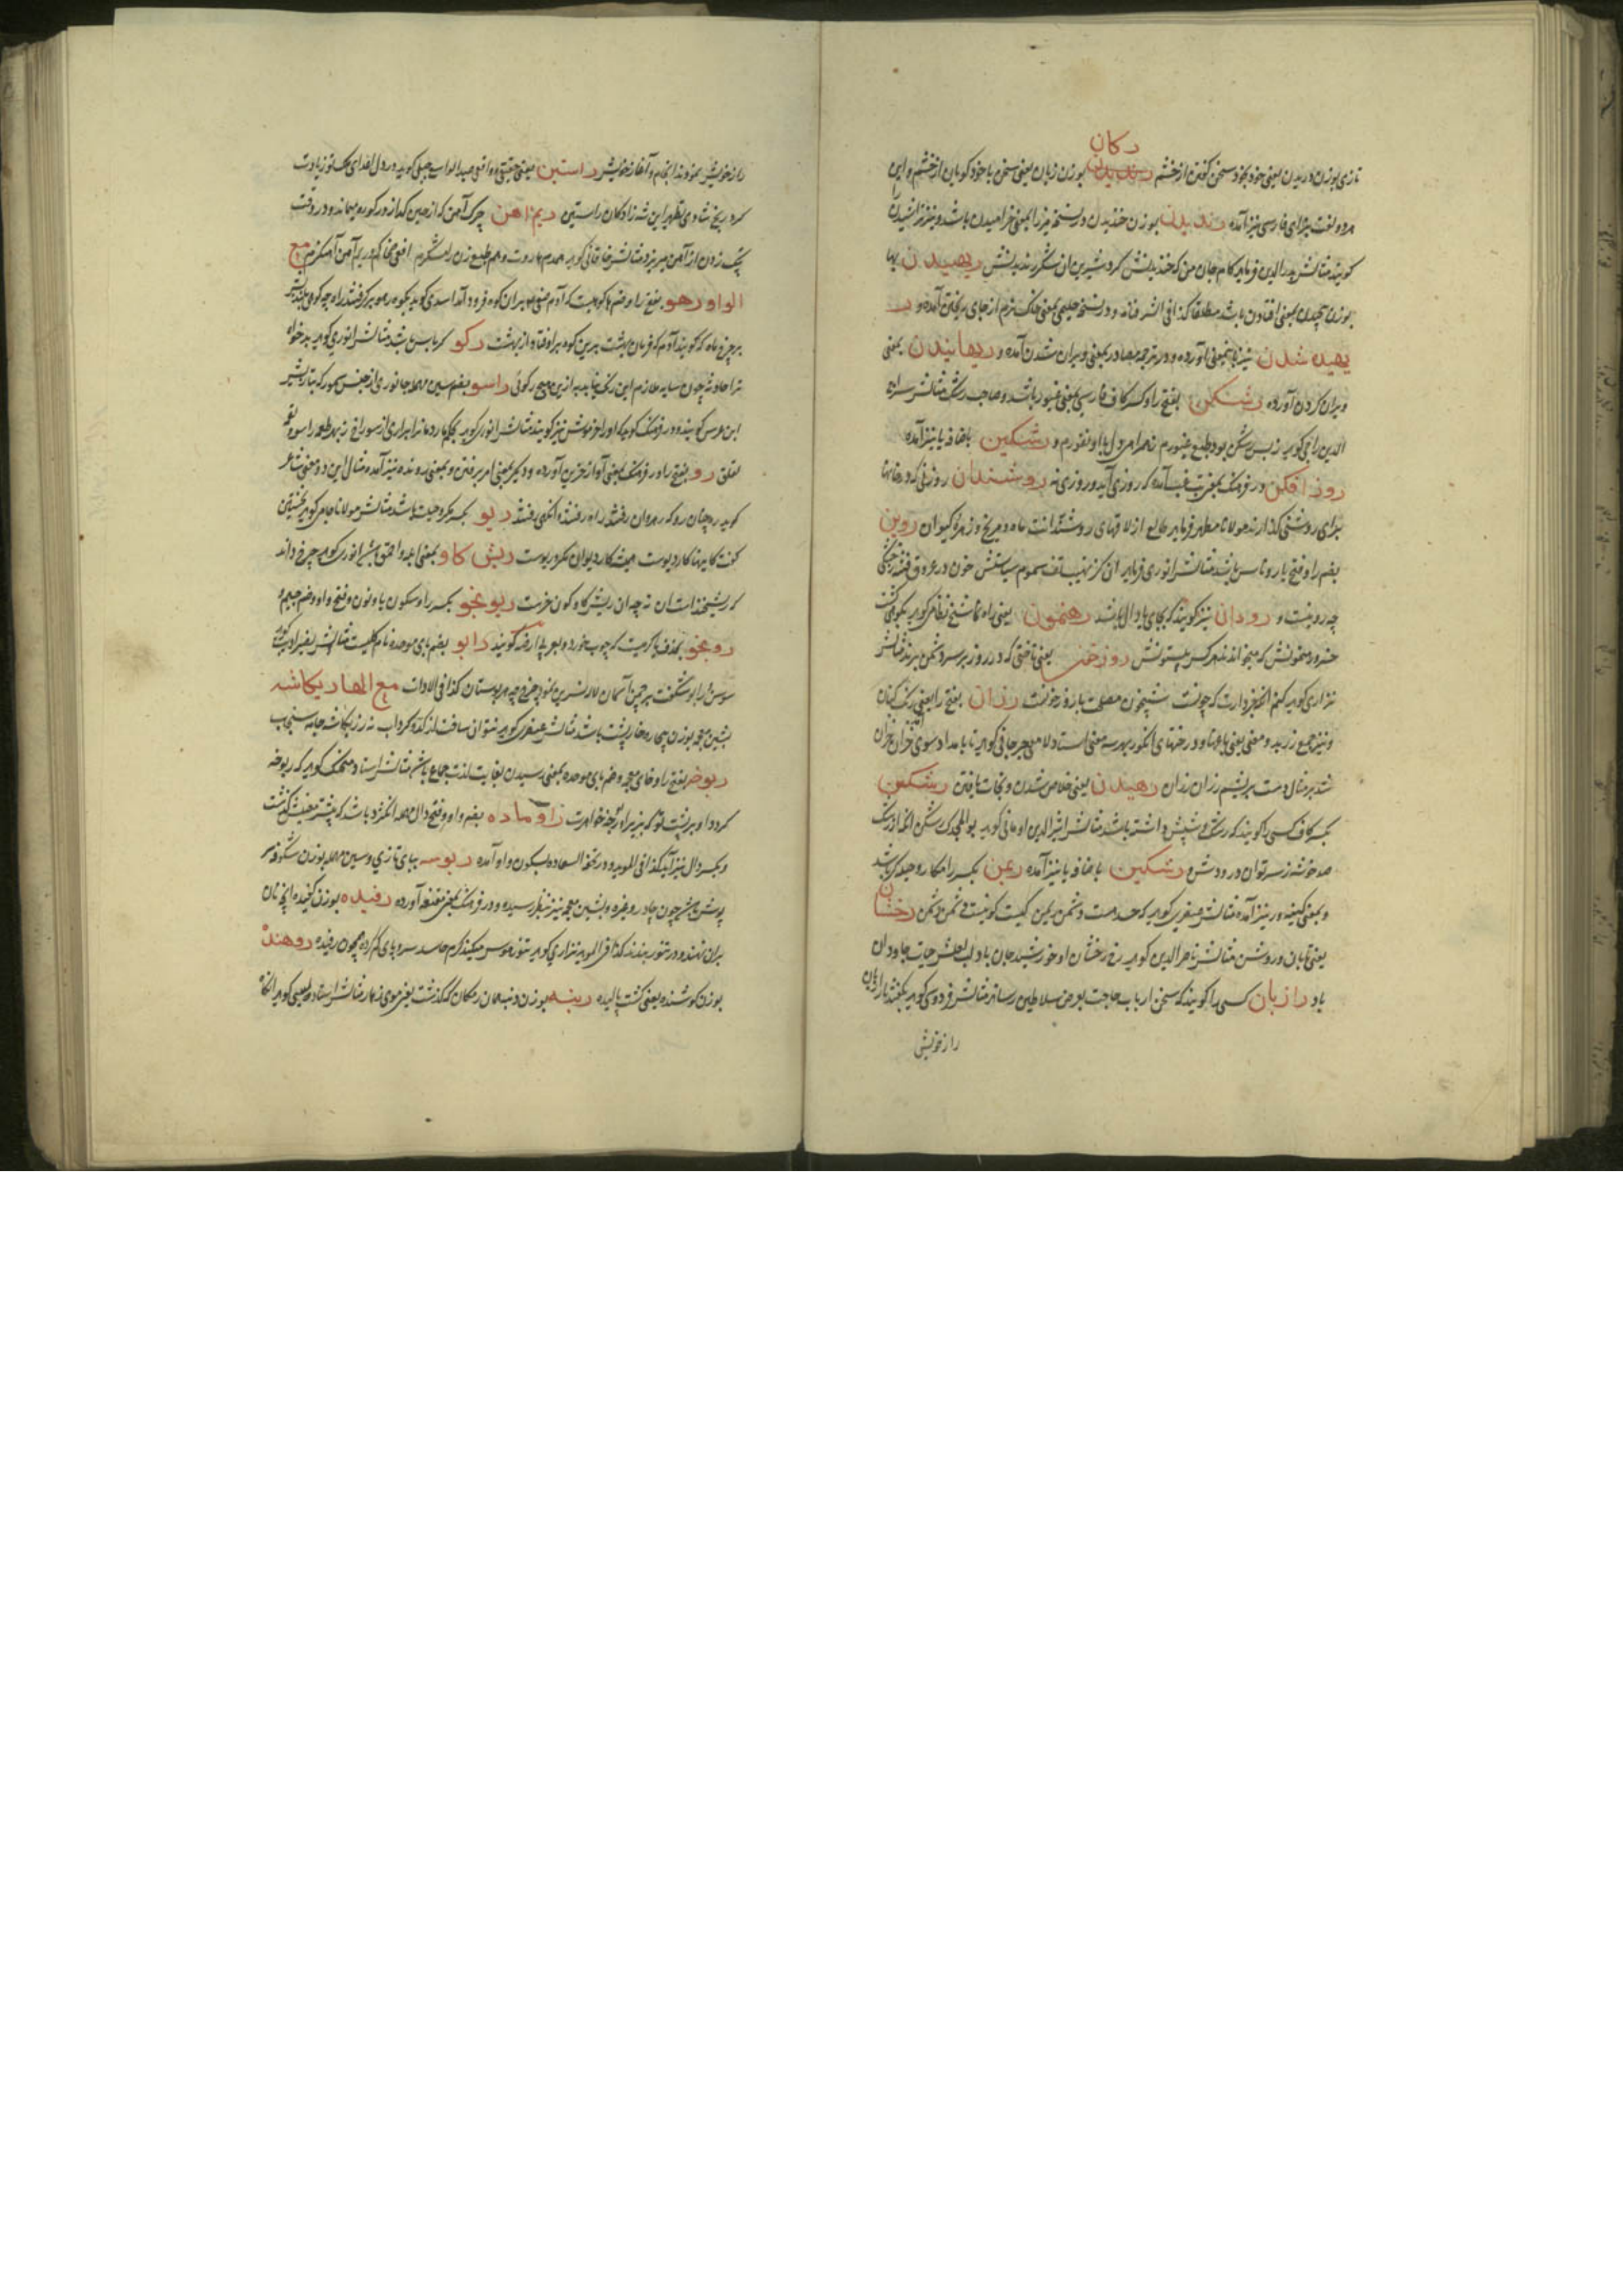 دکان
تازی بوزن دریدن یعنی خود بخود سخن گفتن از خشم رندیدن بوزن زبان یعنی سخن با خود گویان از خشم و این
هر دو لغت بزای فارسی نیز آمده رندیدن بوزن خندیدن در نسخه میرزا بمعنی خرامیدن باشد و نیز تراشیدن را
گویند مثالش بدرالدین فرماید کام جان من که خندیدنش کرد شیرین ان شکر رندیدنش ریهیدن بها
بوزن پیچیدن بمعنی افتادن باشد مطلقا کذا فی الشرفنامه و در نسخه حلیمی بمعنی خاک نرم از جای ریختن آمده و ر
یهیده شدن نیز باین معنی آورده و در ترجمه مصادر بمعنی ویران شدن آمده و ریهانیدن بمعنی
ویران کردن آورده رشکن بفتح را و کسر کاف فارسی بمعنی غیور باشد و صاحب رشک مثالش سراج
الدین راجی گوید ز بس رشکن بود طبع غیورم نه همراه دل با او نفورم و رشکین باضافه یا نیز آمده
روز افکن در فرهنگ بمعنی تب غب آمده که روزی آید و روزی نه روشندان روزنی که در خانها
برای روشنی گذارند مولانا مظهر فرماید طالع از لاقهای روشندانت ماه و مریخ و زهره کیوان روین
بضم را و فتح یا روناس باشد مثالش انوری فرماید ان کز نهیب تف سموم سیاستش خون در عروق فتنه ز خشکی
چه روینست و رودان نیز گویند که بجای یا دال باشد رهنمون یعنی راه نما شیخ نظامی گوید یکی گفت
خسرو رهنمونش که میخوانند هر کس بیستونش روزخن یعنی تاختی که در روز بر سر دشمن برند مثالش
نزاری گوید کنم انچه مراد ارت که چونست شبیخون مصلحت یا روز خونست رزان بفتح را یعنی رنگ کنان
و نیز جمع رز بود و معنی یعنی باغها و درختهای انگور بهر سه معنی استاد لامعی جرجانی گوید تا بامداد سوی خزان خزان
شد بر مثال دست بریشم رزان رزان رهیدن یعنی خلاص شدن و نجات یافتن رشکن
بکسر کاف کسی را گویند که رشک و شپش داشته باشد مثالش اثیرالدین اومانی گوید بوالمجدک رشکن انکه از رشک
صد خوشه ز سر توان درودش و رشکین باضافه یا نیز آمده ریمن بکسر را مکار و حیله گر باشد
و بمعنی کینه ور نیز آمده مثالش عنصری گوید که حسدست دشمن ریمن کیست کو نیست دشمن دشمن رخشان
یعنی تابان و روشن مثالش ناصرالدین گوید رخ رخشان او خورشید جان باد لب لعلش حیات جاودان
باد رازبان کسی را گویند که سخن ارباب حاجت بعرض سلاطین رساند مثالش فردوسی گوید بگفتند با رازبان
راز خویش
راز خویش نمودند انجام و آغاز خویش راستین یعنی حقیقی و واقعی عبدالواسع جبلی گوید در دل اعدای ملک تو زیادت
کرد ریخ شادی تطهیر این شهزادگان راستین ریم آهن چرک آهن که از حین گداز در کوره بماند و در وقت
پتک زدن از آهن میریزد مثالش خاقانی گوید همدم هاروت و هم طبع زن رامشگرم افعی ضحاکم و ریم آهن آهنگرم مع
الواو رهو بفتح را و ضم ها کوهیست که آدم صفی بران کوه فرود آمد اسدی گوید بکوه رهو بر گرفتند راه چه کوهی بلندیش
بر چرخ ماه که گویند آدم که فرمان بهشت برین کوه بر افتاد از بهشت رکو کرباس باشد مثالش انوری گوید بدخواه
ترا حادثه چون سایه ملازم این رنگ نیابد به ازین هیچ رکوئی راسو بضم سین مهمله جانوری از جنس سمور که بتازیش
ابن عرس گویند و در فرهنگ گوید که او را خرموش نیز گویند مثالش انوری گوید بحکم یار دماند ایداری از سوراخ زبهر طعمه راسو
لقلق رو بفتح را در فرهنگ بمعنی آواز حزین آورده و دیگر بمعنی امر برفتن و بمعنی رونده نیز آمده مثال این دو معنی شاعر
گوید ره چنان رو که رهروان رفتند راه رفتند و آنگهی رفتند ریو بکسر مکر و حیلت باشد مثالش مولانا جامی گوید نخستین
گفت کاینها کار دیوست همیشه کار دیوان مکر و ریوست ریش کاو بمعنی ابله و احمق باشد انوری گوید چرخ داند
که ریشخندست ان نه چه ان ریش گاو کون خرست ریونجو بکسر را و سکون یا و نون و فتح واو و ضم جیم و
رونجو بحذف یا کرمیست که چوب خورد و بعربی ارضه گویند رابو بضم بای موحده نام گلیست مثالش بفخراد بگوید
سوسن و رابو شگفت بر چمن آسمان لاله نسرین نمود چرخ چه بوستان کذا فی الادات مع الهاء ریکاشه
بشین معجمه بوزن بیچاره خارپشت باشد مثالش عنصری گوید نتوان ساخت از کدو گرداب نه ز ریکاشه جامه سنجاب
ریوخه بفتح را و خای معجمه و ضم بای موحده بمعنی رسیدن بغایت لذت جماع باشد مثالش استاد منجیک گوید که ریوخه
گردد او بر پشت تو گه بزیر او ریوخه خواهرت راوماده بضم واو و فتح دال مهمله انگزد باشد که پیشتر معنیش گذشت
و بکسر دال نیز آید کذا فی المؤید و در تحفة السعاده بسکون واو آمده ربوسه ببای تازی و سین مهمله بوزن شکوفه سر
پوش باشد چون چادر و غیره و بشین معجمه نیز بنظر رسیده و در فرهنگ بمعنی مقنعه آورده رفیده بوزن کفیده انچه نان
بران نهند و در تنور بندند کذا فی المؤید نزاری گوید تنور هوس میکند گرم حاسد سر و پای گم کرده همچون رفیده روهنده
بوزن کوشنده یعنی گشت بالیده رینه بوزن دنبه همان رمکان که گذشت یعنی موی زهار مثالش استاد لبیبی گوید انکه